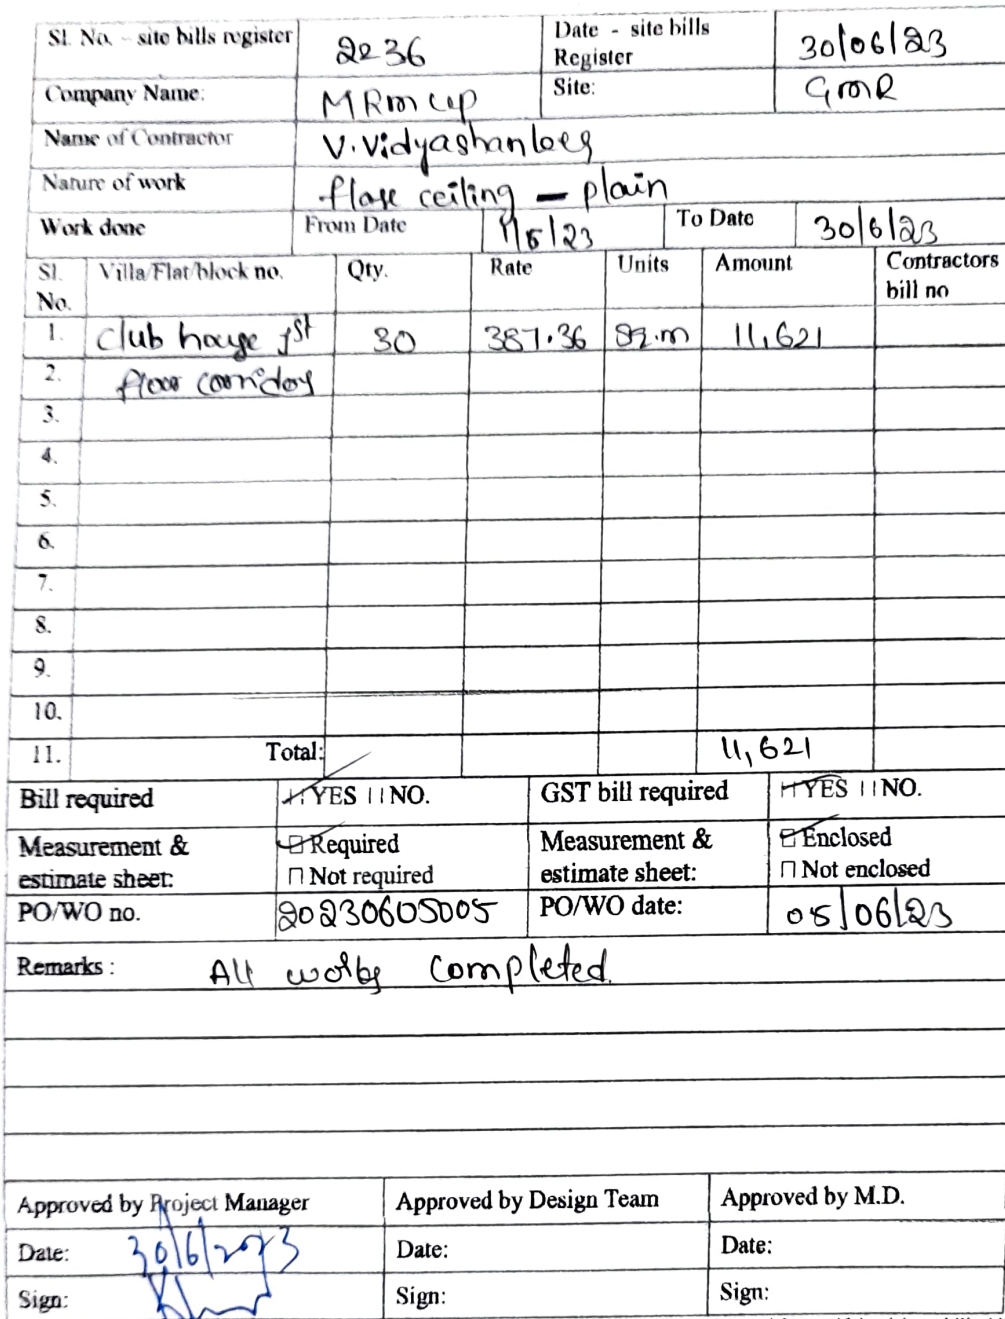 Sl. No. – site bills register 2236 Date - site bills Register 30/06/23
Company Name: MRMCLP Site: GMR
Name of Contractor V. Vidyashankar
Nature of work flase ceiling – plain
Work done From Date 1/6/23 To Date 30/6/23
Sl. No. Villa/Flat/block no. Qty. Rate Units Amount Contractors bill no
1. club house 1st 30 387.36 sq.m 11,621
2. floor corridor
3.
4.
5.
6.
7.
8.
9.
10.
11. Total: 11,621
Bill required YES NO. GST bill required YES NO.
Measurement & estimate sheet: Required Measurement & estimate sheet: Enclosed
Not required Not enclosed
PO/WO no. 20230605005 PO/WO date: 05/06/23
Remarks : All works completed.
Approved by Project Manager Approved by Design Team Approved by M.D.
Date: 30/6/2023 Date: Date:
Sign: Sign: Sign: